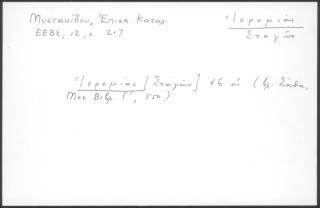 Μυστακίδου, Ἐπισκ. Κατάλ.
ΕΕΒΣ, 12, σ. 217
Ἱερεμίας
Σταγῶν
Ἱερεμίας [Σταγῶν] (βλ. Σάθα,
Μεσ. Βιβλ. Γ', 550)